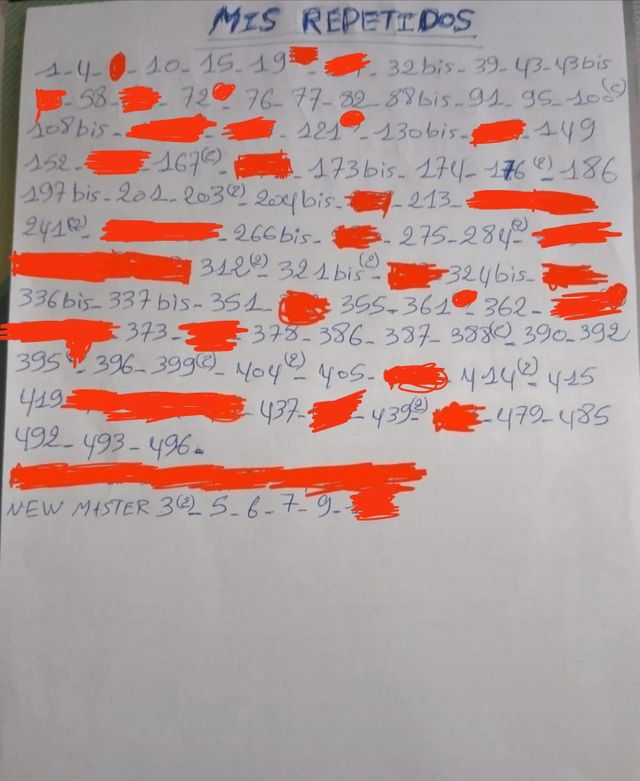 MIS REPETIDOS
1-4- -10-15-19 - 32bis-39-43-43bis
-58- 72 - 76-77-82-88bis-91-95-100(2)
108bis- - -121 -130bis- -149
152- -167(2)- -173bis-174-176(2)-186
197bis-201-203(2)-204bis- -213-
241(2)- -266bis- -275-284(2)-
312(2)-321bis(2)- 324bis-
336bis-337bis-351- 355-361 -362-
373- 378-386-387-388(2)-390-392
395 -396-399(2)-404(2)-405- 414(2)-415
419 -437- -439(2)- -479-485
492-493-496.
NEW MASTER 3(2)-5-6-7-9-